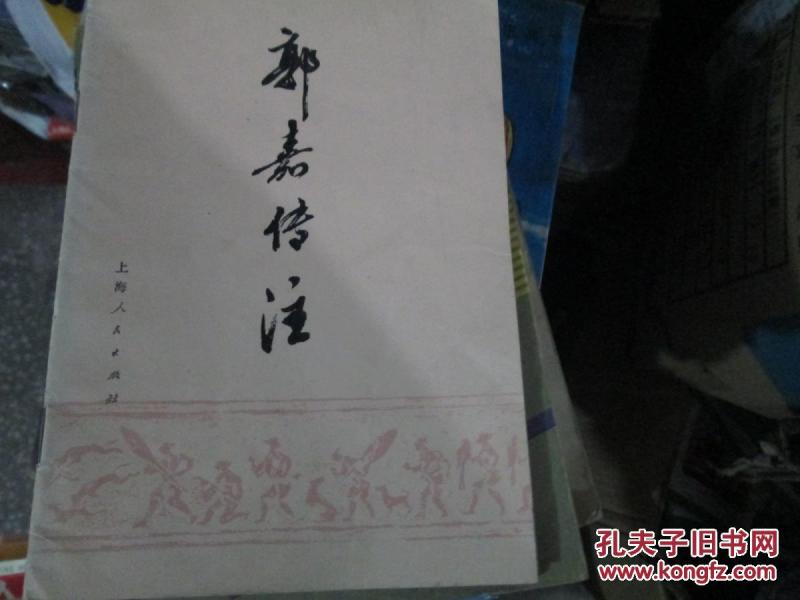 郭嘉传注
上海人民出版社
孔夫子旧书网
www.kongfz.com